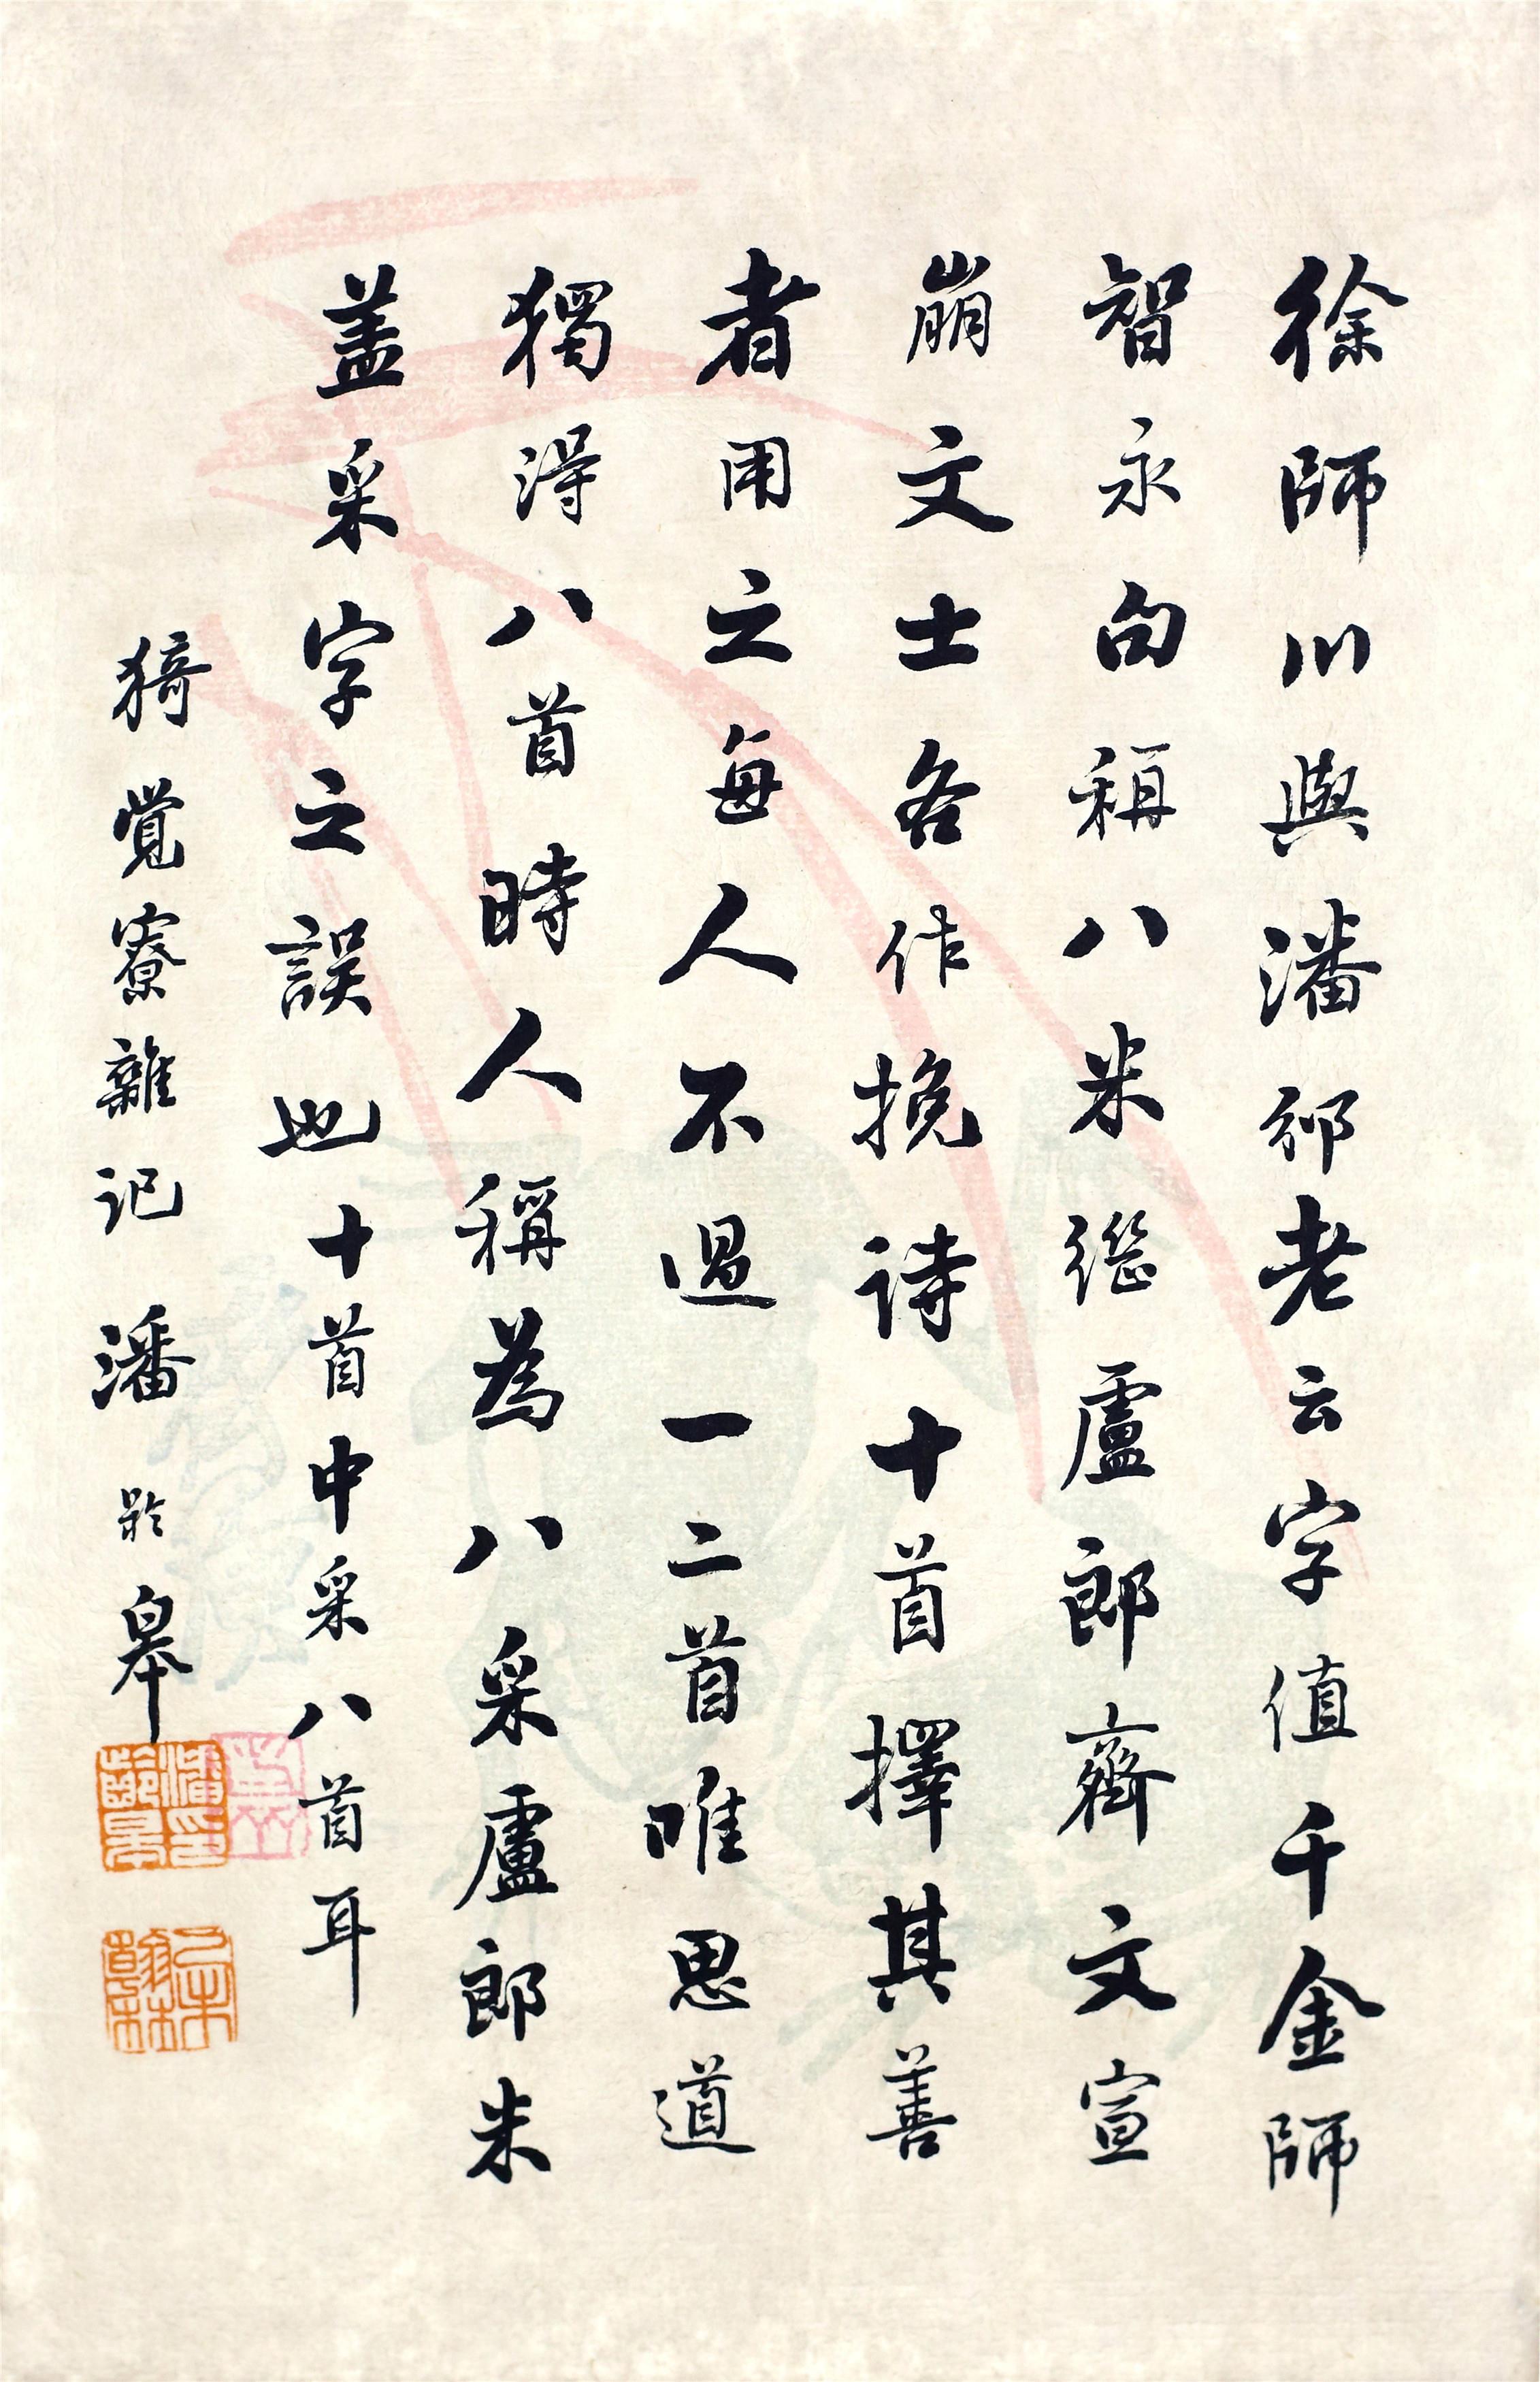 徐師川與潘邠老云字值千金師
智永句稱八米繼盧郎齊文宣
崩文士各作挽诗十首擇其善
者用之每人不過一二首唯思道
獨淂八首時人稱為八采盧郎米
盖采字之誤也十首中采八首耳
猗覺寮雜记 潘齡皋
潘印齡皋